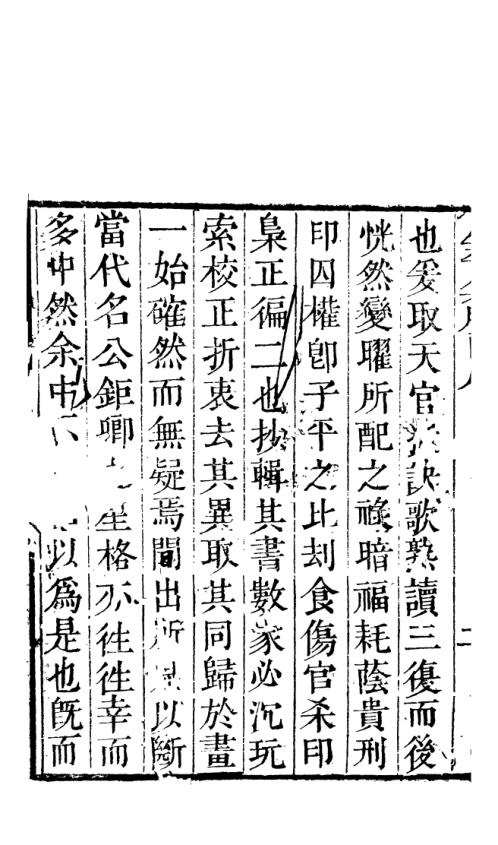 也爰取天官訣歌熟讀三復而後
恍然變曜所配之祿暗福耗蔭貴刑
印囚權卽子平之比刦食傷官杀印
梟正徧二也抄輯其書數家必沉玩
索校正折衷去其異取其同歸於畫
一始確然而無疑焉間出所以斷
當代名公鉅卿星格亦徃徃幸而
多中然余中以為是也旣而